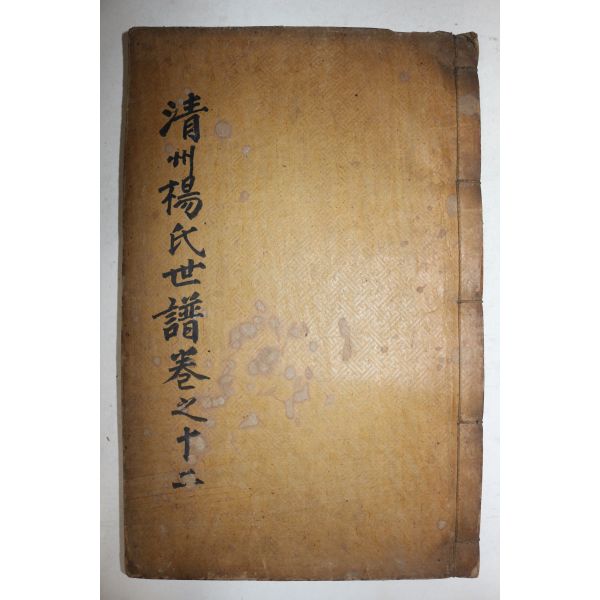 清州楊氏世譜卷之十二